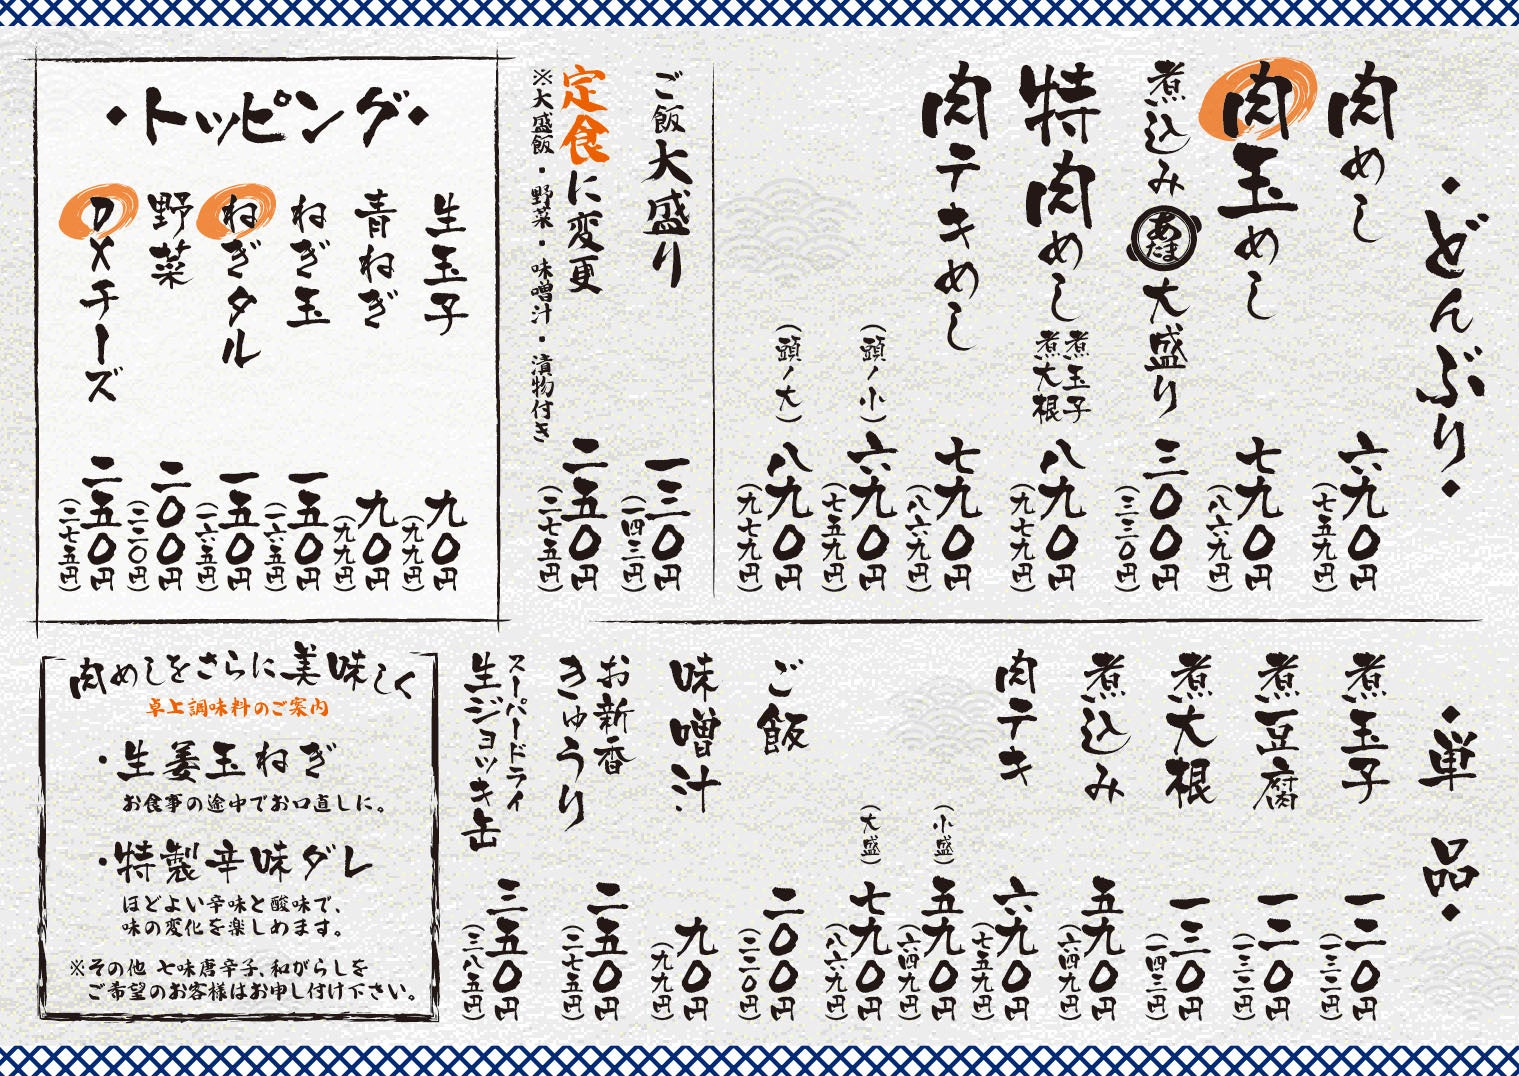 ・どんぶり・
肉めし 六九〇円
(七五九円)
肉玉めし 七九〇円
(八六九円)
煮込みあたま大盛り 三〇〇円
(三三〇円)
特肉めし 煮玉子 煮大根 八九〇円
(九七九円)
肉テキめし 七九〇円
(八六九円)
(頭ノ小) 六九〇円
(七五九円)
(頭ノ大) 八九〇円
(九七九円)
ご飯大盛り 一三〇円
(一四三円)
定食に変更 二五〇円
(二七五円)
※大盛飯・野菜・味噌汁・漬物付き
・トッピング・
生玉子 九〇円
(九九円)
青ねぎ 九〇円
(九九円)
ねぎ玉 一五〇円
(一六五円)
ねぎタル 一五〇円
(一六五円)
野菜 二〇〇円
(二二〇円)
DXチーズ 二五〇円
(二七五円)
・単品・
煮玉子 一二〇円
(一三二円)
煮豆腐 一二〇円
(一三二円)
煮大根 一三〇円
(一四三円)
煮込み 五九〇円
(六四九円)
肉テキ 六九〇円
(七五九円)
(小盛) 五九〇円
(六四九円)
(大盛) 七九〇円
(八六九円)
ご飯 二〇〇円
(二二〇円)
味噌汁 九〇円
(九九円)
お新香
きゅうり 二五〇円
(二七五円)
スーパードライ
生ジョッキ缶 三五〇円
(三八五円)
肉めしをさらに美味しく
卓上調味料のご案内
・生姜玉ねぎ
お食事の途中でお口直しに。
・特製辛味ダレ
ほどよい辛味と酸味で、
味の変化を楽しめます。
※その他 七味唐辛子、和がらしを
ご希望のお客様はお申し付け下さい。